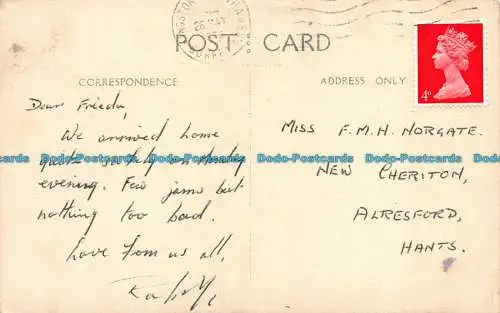 POST CARD
CORRESPONDENCE
ADDRESS ONLY
4D
Dear Frieda,
We arrived home
quite
evening. Few jams but
nothing too bad.
Love from us all,
MISS F.M.H. NORGATE.
NEW CHERITON,
ALRESFORD,
HANTS.
Dodo-Postcards Dodo-Postcards Dodo-Postcards Dodo-Postcards
26 MAY
SURREY